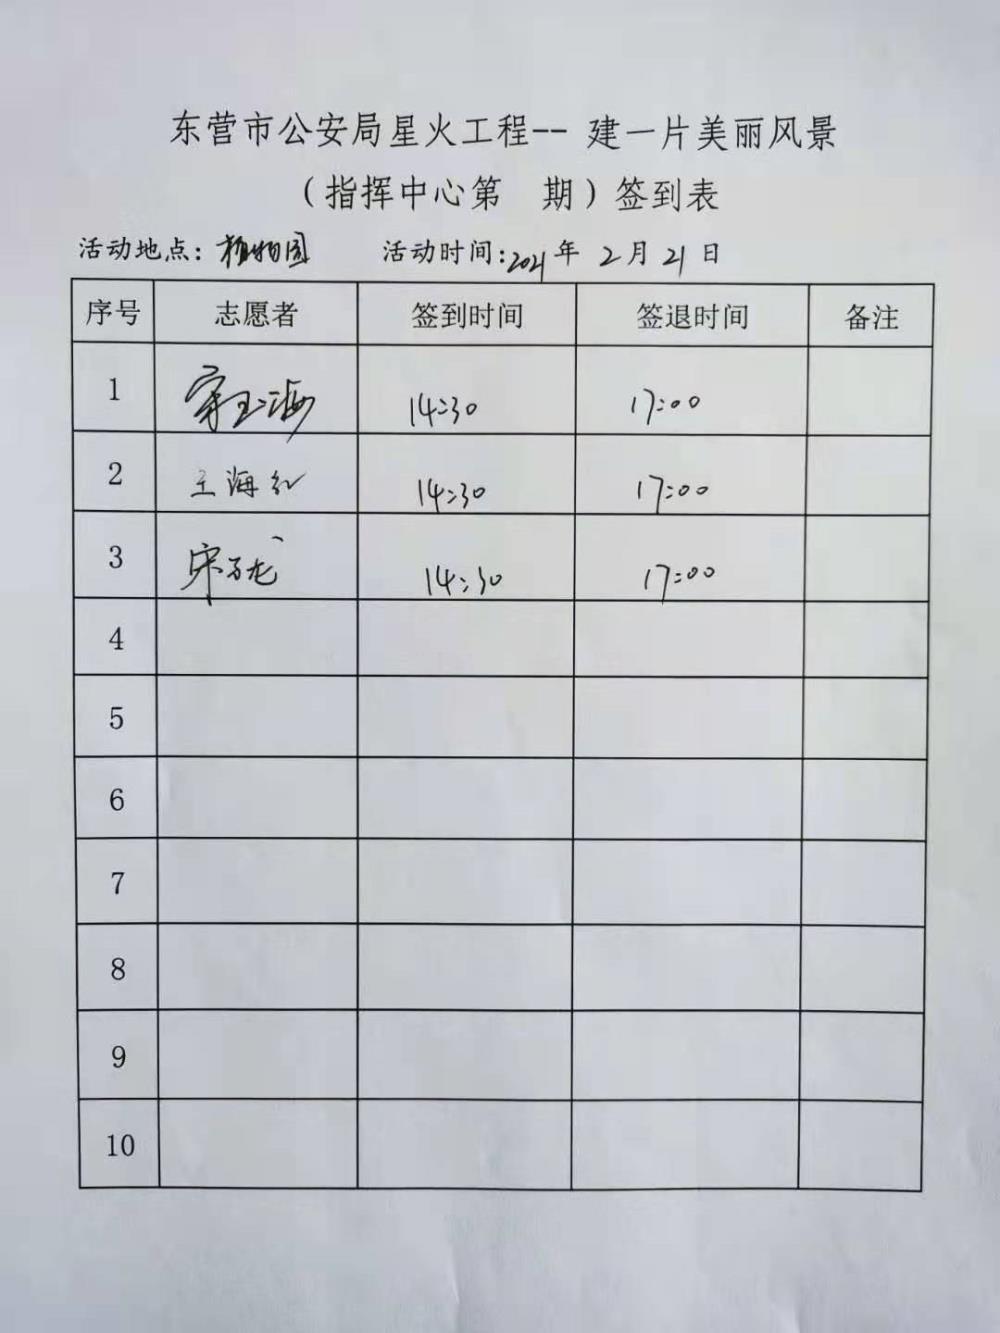 东营市公安局星火工程-- 建一片美丽风景
（指挥中心第 期）签到表
活动地点：植物园 活动时间：2021年 2月 21日
序号 志愿者 签到时间 签退时间 备注
1 宋玉海 14:30 17:00
2 王海红 14:30 17:00
3 宋子龙 14:30 17:00
4
5
6
7
8
9
10